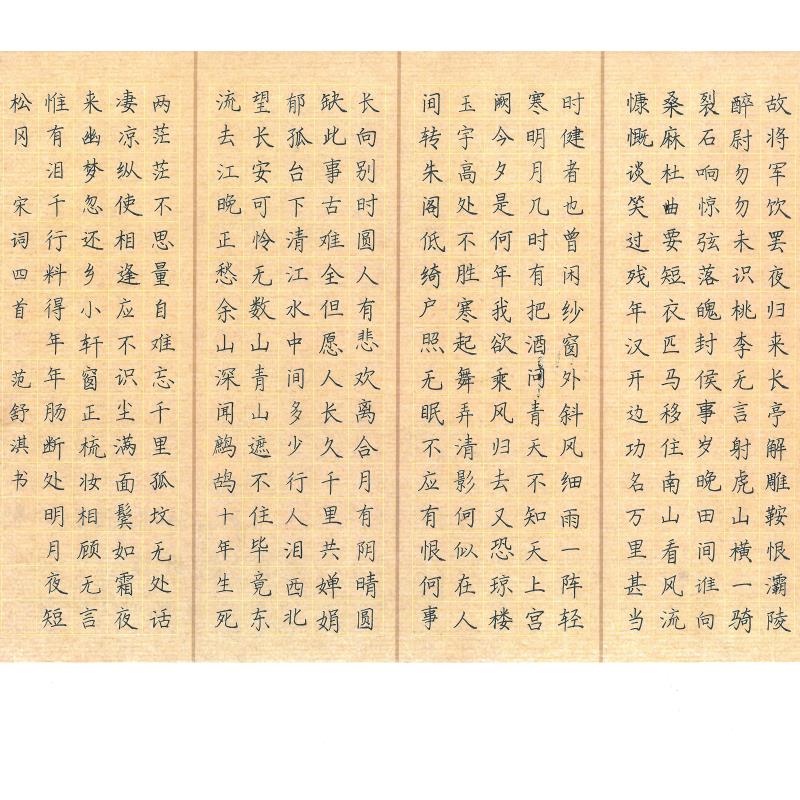 故将军饮罢夜归来长亭解雕鞍恨灞陵
醉尉勿勿未识桃李无言射虎山横一骑
裂石响惊弦落魄封侯事岁晚田间谁向
桑麻杜曲要短衣匹马移住南山看风流
慷慨谈笑过残年汉开边功名万里甚当
时健者也曾闲纱窗外斜风细雨一阵轻
寒明月几时有把酒问青天不知天上宫
阙今夕是何年我欲乘风归去又恐琼楼
玉宇高处不胜寒起舞弄清影何似在人
间转朱阁低绮户照无眠不应有恨何事
长向别时圆人有悲欢离合月有阴晴圆
缺此事古难全但愿人长久千里共婵娟
郁孤台下清江水中间多少行人泪西北
望长安可怜无数山青山遮不住毕竟东
流去江晚正愁余山深闻鹧鸪十年生死
两茫茫不思量自难忘千里孤坟无处话
凄凉纵使相逢应不识尘满面鬓如霜夜
来幽梦忽还乡小轩窗正梳妆相顾无言
惟有泪千行料得年年肠断处明月夜短
松冈 宋词四首 范舒淇书